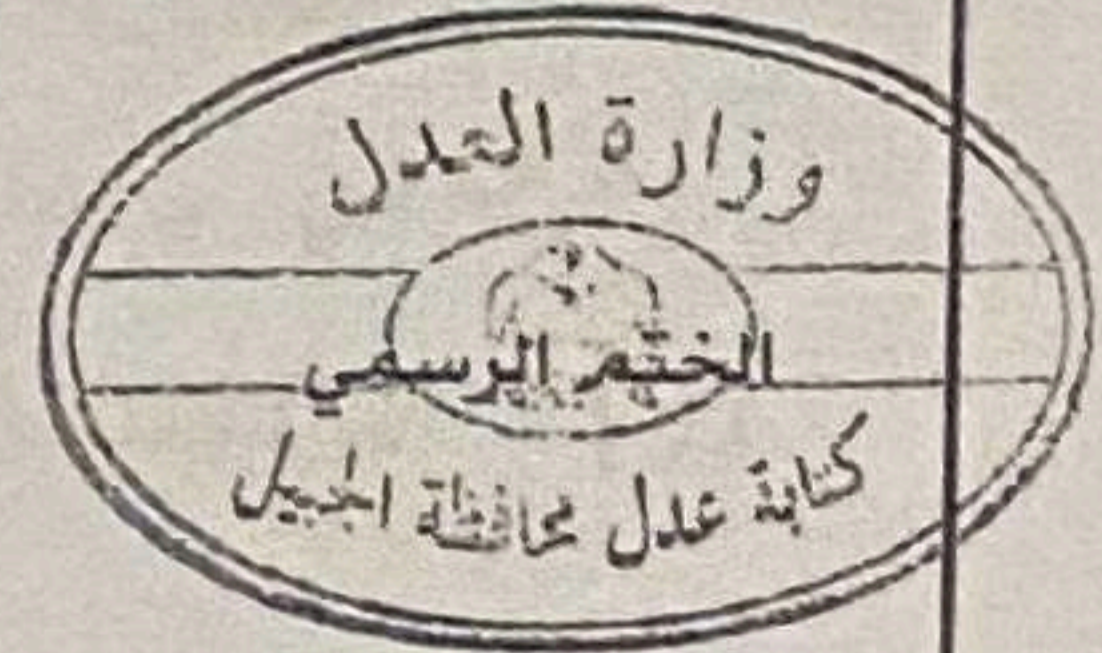 وزارة العدل
الختم الرسمي
كتابة عدل محافظة الجبيل